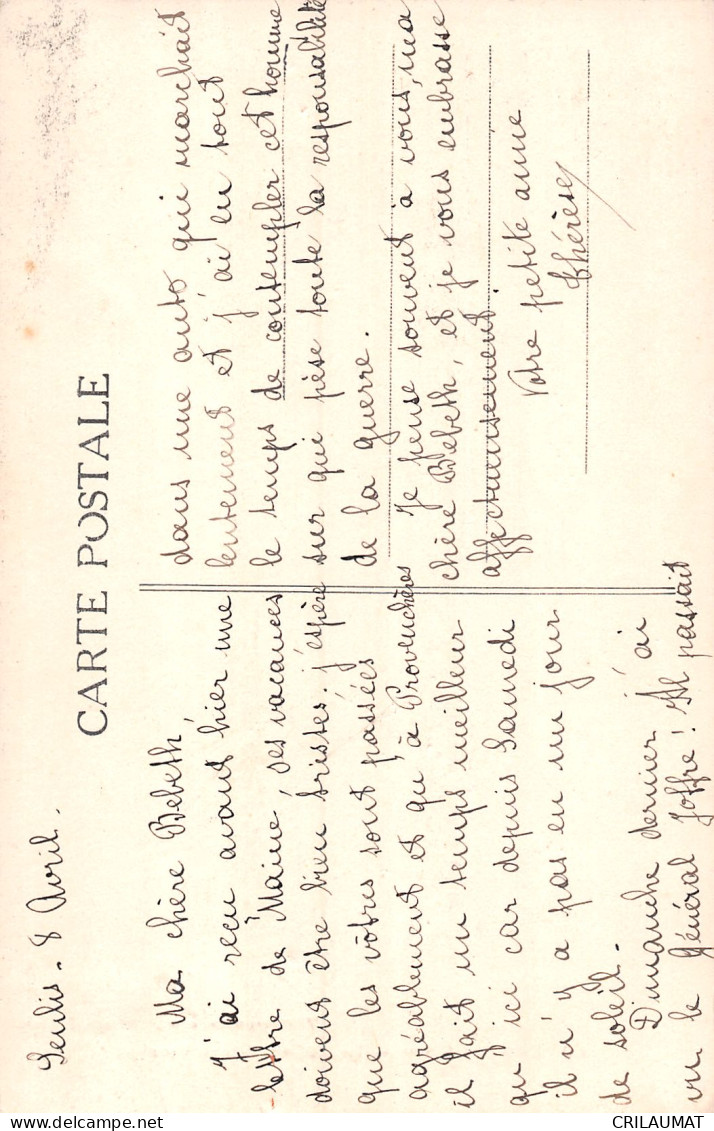 Senlis - 8 Avril.
CARTE POSTALE
Ma chère Bebeth,
J'ai reçu avant hier une
lettre de Maine, ses vacances
doivent être bien tristes. j'espère
que les vôtres sont passées
agréablement et qu'à Provenchères
il fait un temps meilleur
qu'ici car depuis Samedi
il n'y a pas eu un jour
de soleil.
Dimanche dernier j'ai
vu le Général Joffre! Il passait
dans une auto qui marchait
lentement et j'ai eu tout
le temps de contempler cet homme
sur qui pèse toute la responsabilité
de la guerre.
Je pense souvent à vous, ma
chère Bebeth, et je vous embrasse
affectueusement.
Votre petite amie
Thérèse
CRILAUMAT